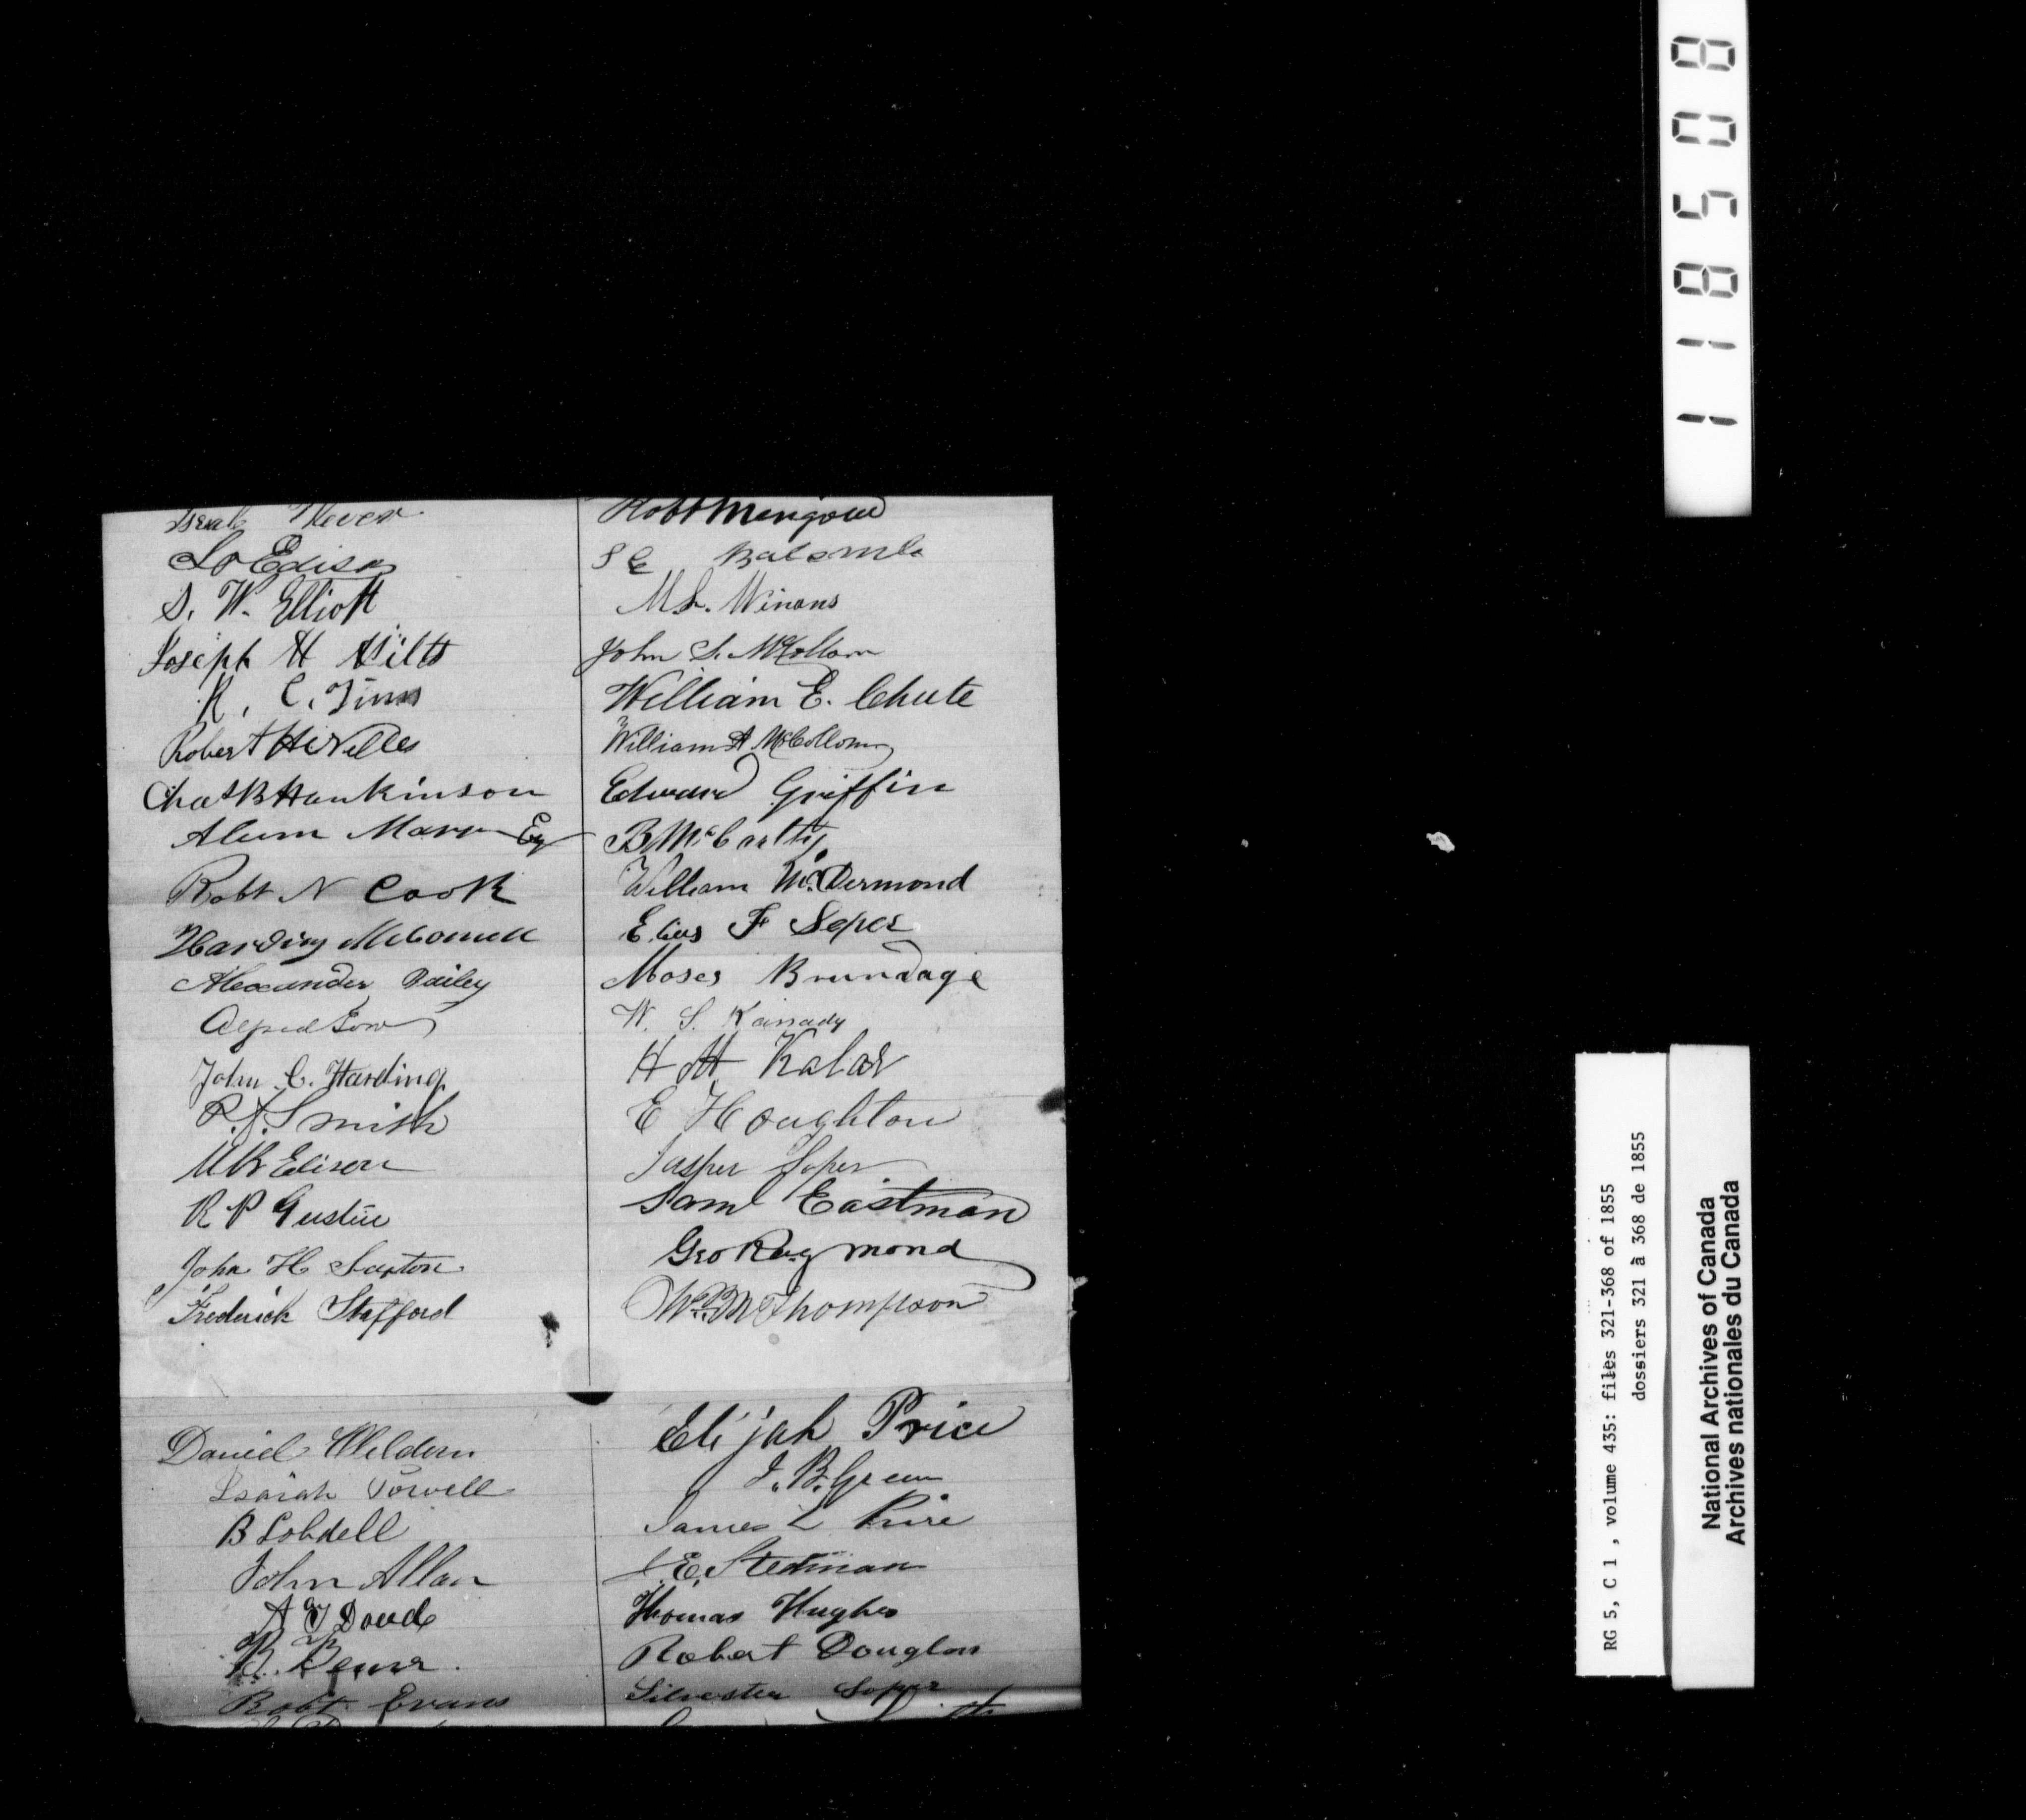 Robt Mengoud
Lo Edison
S. W. Elliott
M. L. Winans
Joseph H Hilts
John S. McCollom
R. C. Timms
William E. Chute
Robert H Nelles
William A McCollom
Chas B Hankinson
Edward Griffin
Alum Marr Esq
B McCarthy
Robt N Cook
William McDermond
Harding McConnell
Elias F Soper
Alexander Bailey
Moses Brundage
Alfred Gow
W. S. Kanady
John C. Harding
H H Kalar
R. J. Smith
E Houghton
M B Edison
Jasper Soper
R P Gustin
Saml Eastman
John H Saxton
Geo Raymond
Frederick Stafford
Wm M Thompson
Daniel Weldern
Elijah Price
Isaiah Towell
J. B. Green
B Lobdell
James L Price
John Allan
J. E. Stedman
A J Doude
Thomas Hughes
Robert Douglass
Robt. Evans
Silvester Soper
118508
RG 5, C 1 , volume 435: files 321-368 of 1855
dossiers 321 à 368 de 1855
National Archives of Canada
Archives nationales du Canada